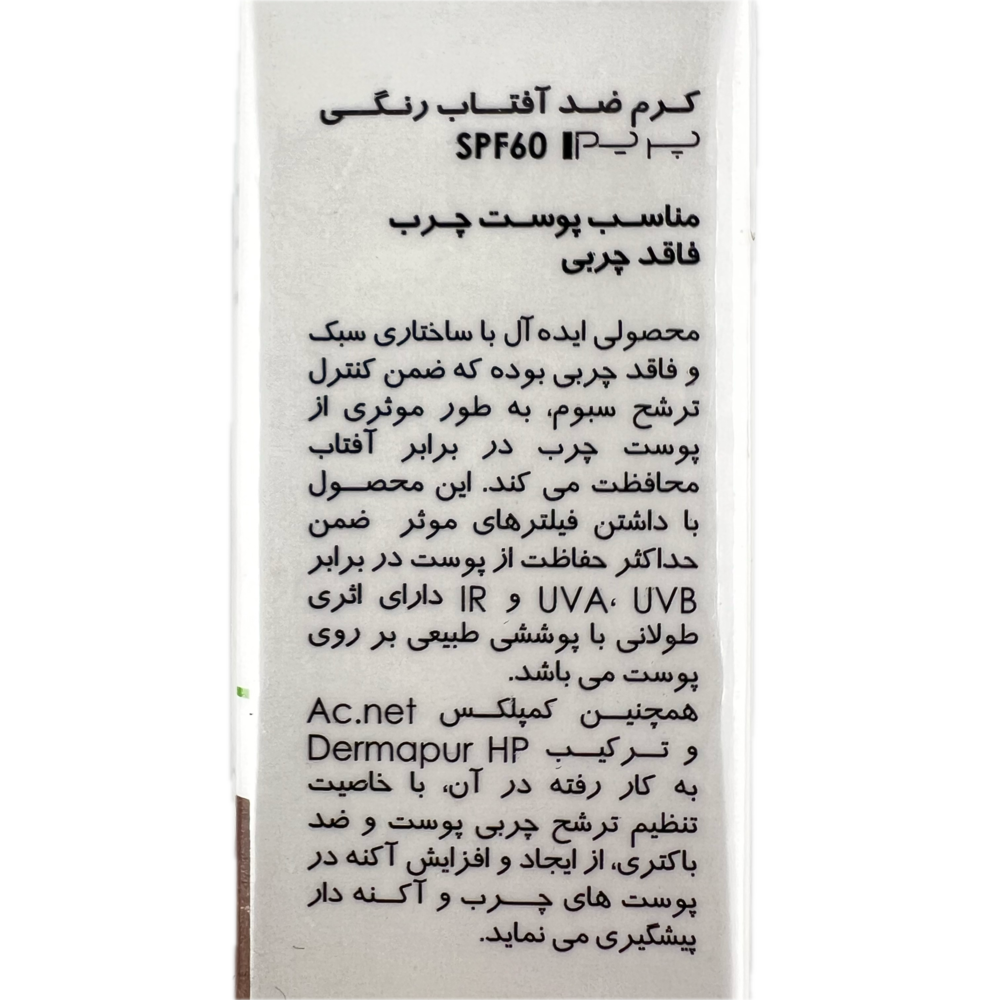 کرم ضد آفتاب رنگی
پریم SPF60
مناسب پوست چرب
فاقد چربی
محصولی ایده آل با ساختاری سبک
و فاقد چربی بوده که ضمن کنترل
ترشح سبوم، به طور موثری از
پوست چرب در برابر آفتاب
محافظت می کند. این محصول
با داشتن فیلترهای موثر ضمن
حداکثر حفاظت از پوست در برابر
UVA، UVB و IR دارای اثری
طولانی با پوششی طبیعی بر روی
پوست می باشد.
همچنین کمپلکس Ac.net
و ترکیب Dermapur HP
به کار رفته در آن، با خاصیت
تنظیم ترشح چربی پوست و ضد
باکتری، از ایجاد و افزایش آکنه در
پوست های چرب و آکنه دار
پیشگیری می نماید.